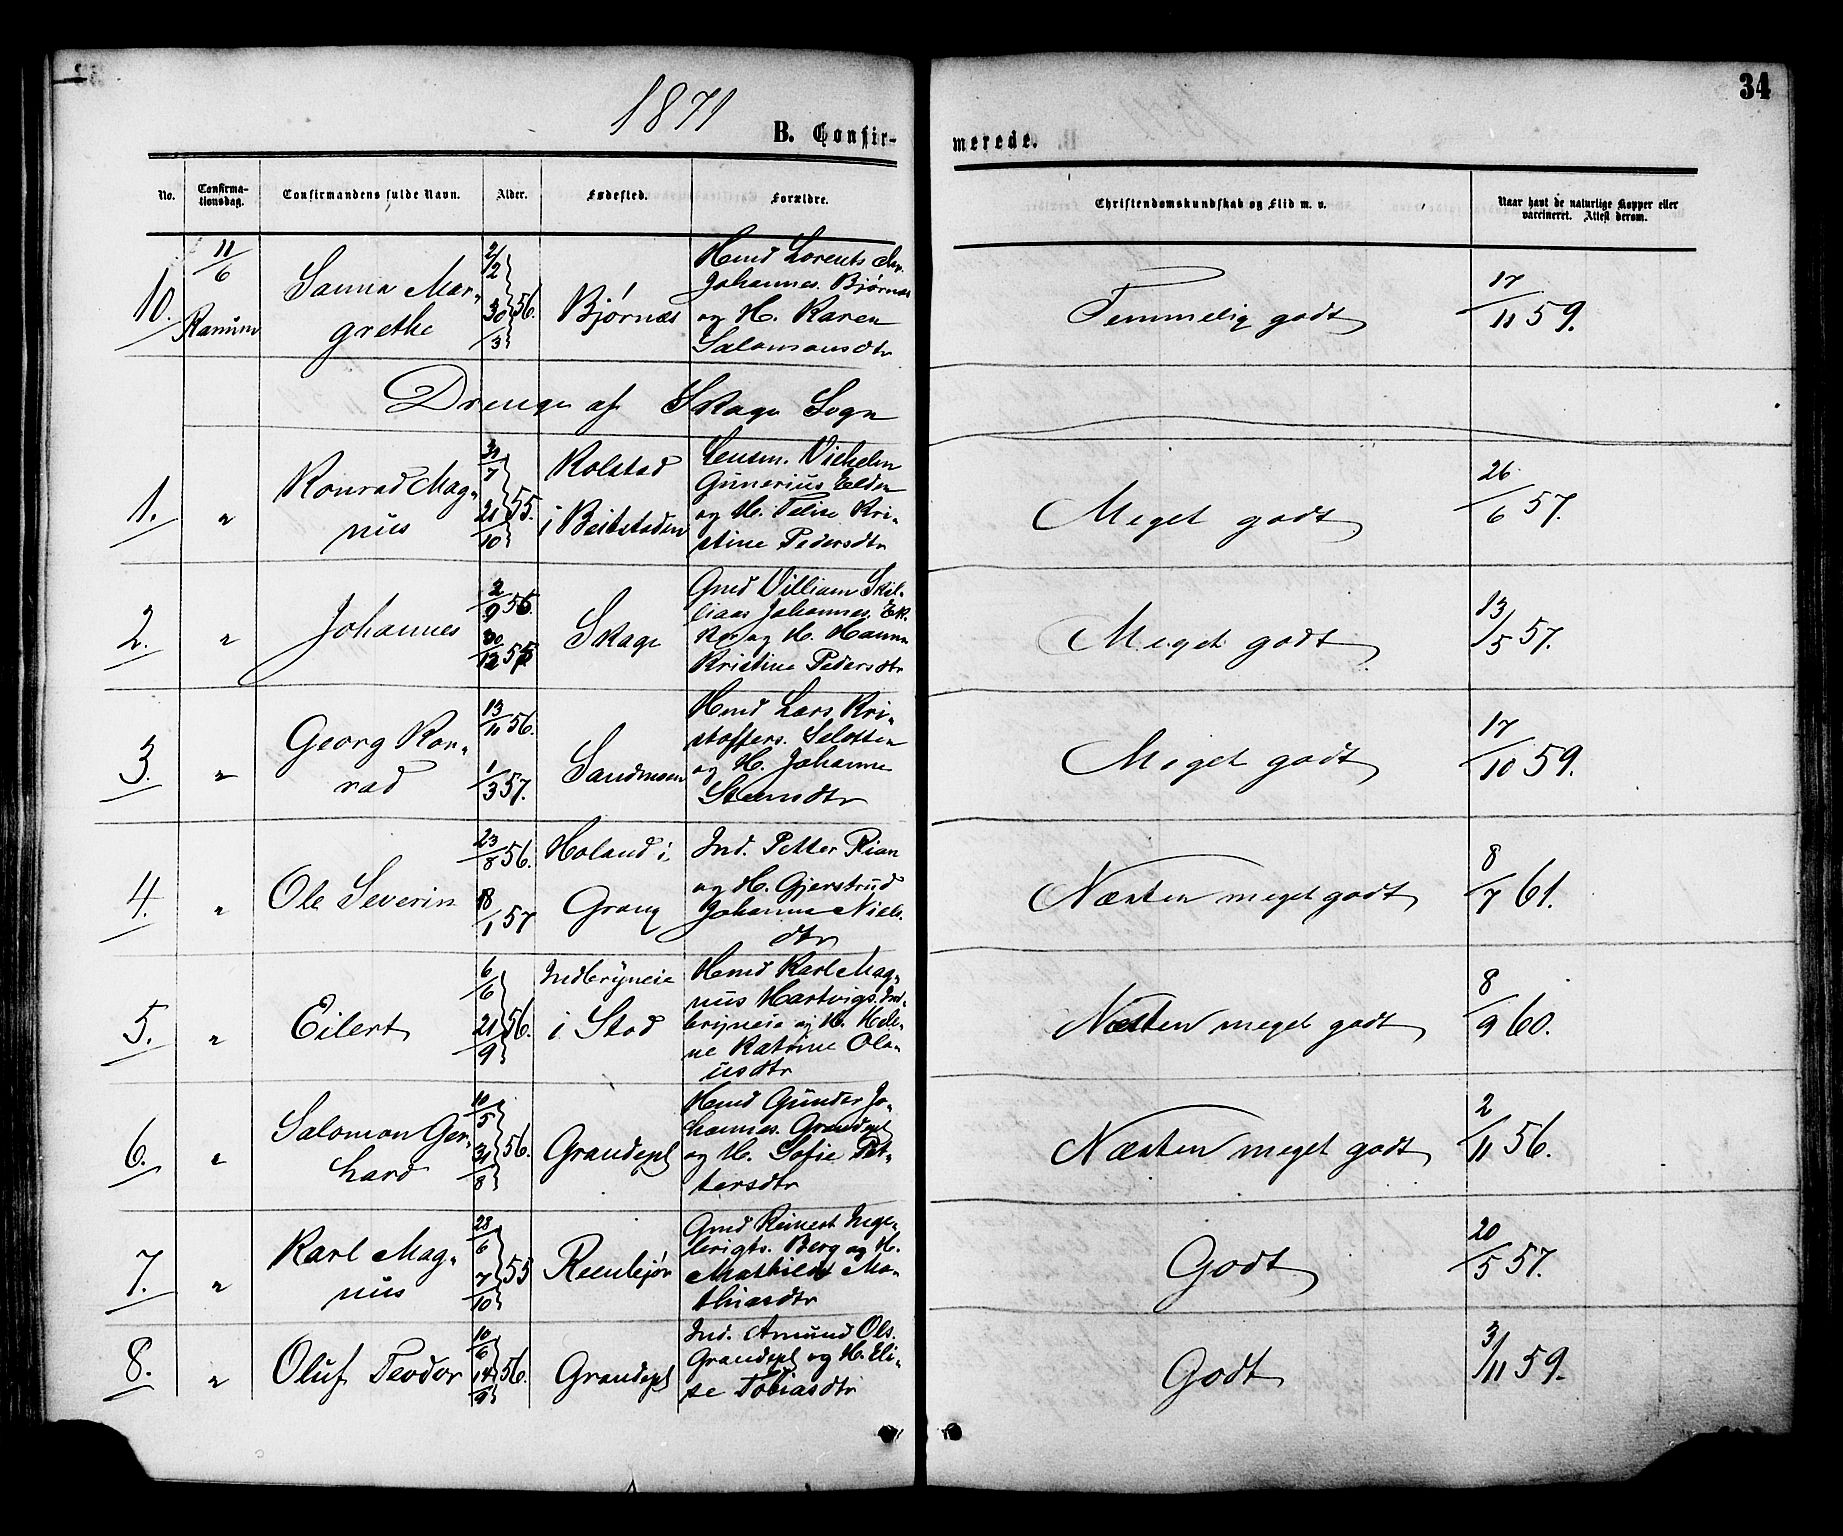 34
1871
B. Confir-
merede.
No.
Confirma-
tionsdag.
Confirmandens fulde Navn.
Alder.
Fødested.
Forældre.
Christendomskundskab og Flid m. v.
Naar havt de naturlige Kopper eller
vaccineret. Attest derom.
10.
11/6
Ranum
Sanna Mar-
grethe
2/2
30/3
56.
Bjørnæs
Hmd Lorents Chr.
Johannes. Bjørnæs
og H. Karen
Salomonsdtr
Temmelig godt
17/11 59.
Drenge af Skage Sogn
1.
"
Konrad Mag-
nus
31/7
21/10
55.
Rolstad
i Beitstaden
Lensm. Vilhelm
Gunerius Elden
og H. Feline Kri-
stine Pedersdtr
Meget godt
26/6 57.
2.
"
Johannes
2/9 56.
30/12 55
Skage
Gmd Villiam Skil-
liaas Johannes. Ek-
ker og H. Hanna
Kristine Pedersdtr
Meget godt
13/5 57.
3.
"
Georg Kon-
rad
13/11 56.
1/3 57.
Sandmoen
Hmd Lars Kri-
stoffers. Seldtten
og H. Johanna
Stensdtr
Meget godt
17/10 59.
4.
"
Ole Severin
23/8 56.
18/1 57
Holand i
Grong
Ind. Petter Rian
og H. Gjerstrud
Johanna Niels.
dtr
Næsten meget godt
8/7 61.
5.
"
Eilert
6/6
21/9
56.
Indbryneie
i Stod
Hmd Karl Mag-
nus Hartvigs. Ind-
bryneie og H. Hele-
ne Katrine Ola-
usdtr
Næsten meget godt
8/9 60.
6.
"
Salomon Ger-
hard
10/5
31/8
56.
Grandepl
Hmd Gunder Jo-
hannes. Grandepl
og H. Sofie Pet-
tersdtr
Næsten meget godt
2/11 56.
7.
"
Karl Mag-
nus
28/6
7/10
55
Reenbjør
Gmd Reinert Inge-
brigts. Berg og H.
Mathilde Ma-
thiasdtr
Godt
20/5 57.
8.
"
Oluf Teodor
10/6
14/9
56.
Grandepl
Ind. Amund Ols.
Grandepl og H. Eli-
se Tobiasdtr
Godt
3/11 59.